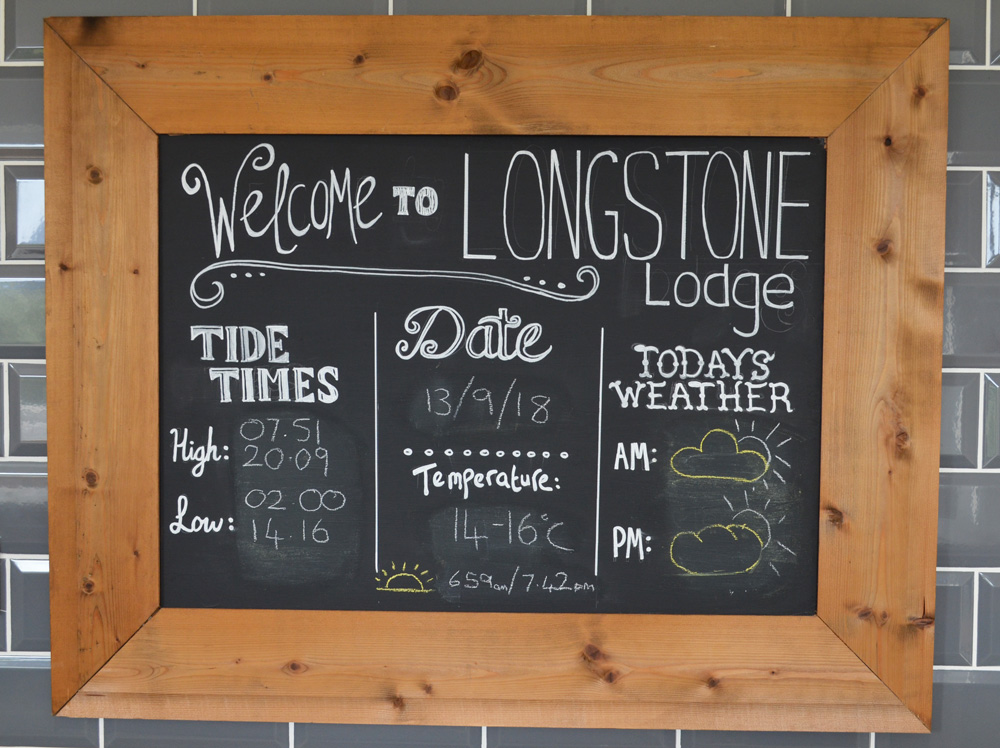 Welcome TO LONGSTONE
Lodge
TIDE
TIMES
High: 07.51
20.09
Low: 02 00
14.16
Date
13/9/18
Temperature:
14-16°C
6 59am/7.42pm
TODAYS
WEATHER
AM:
PM: